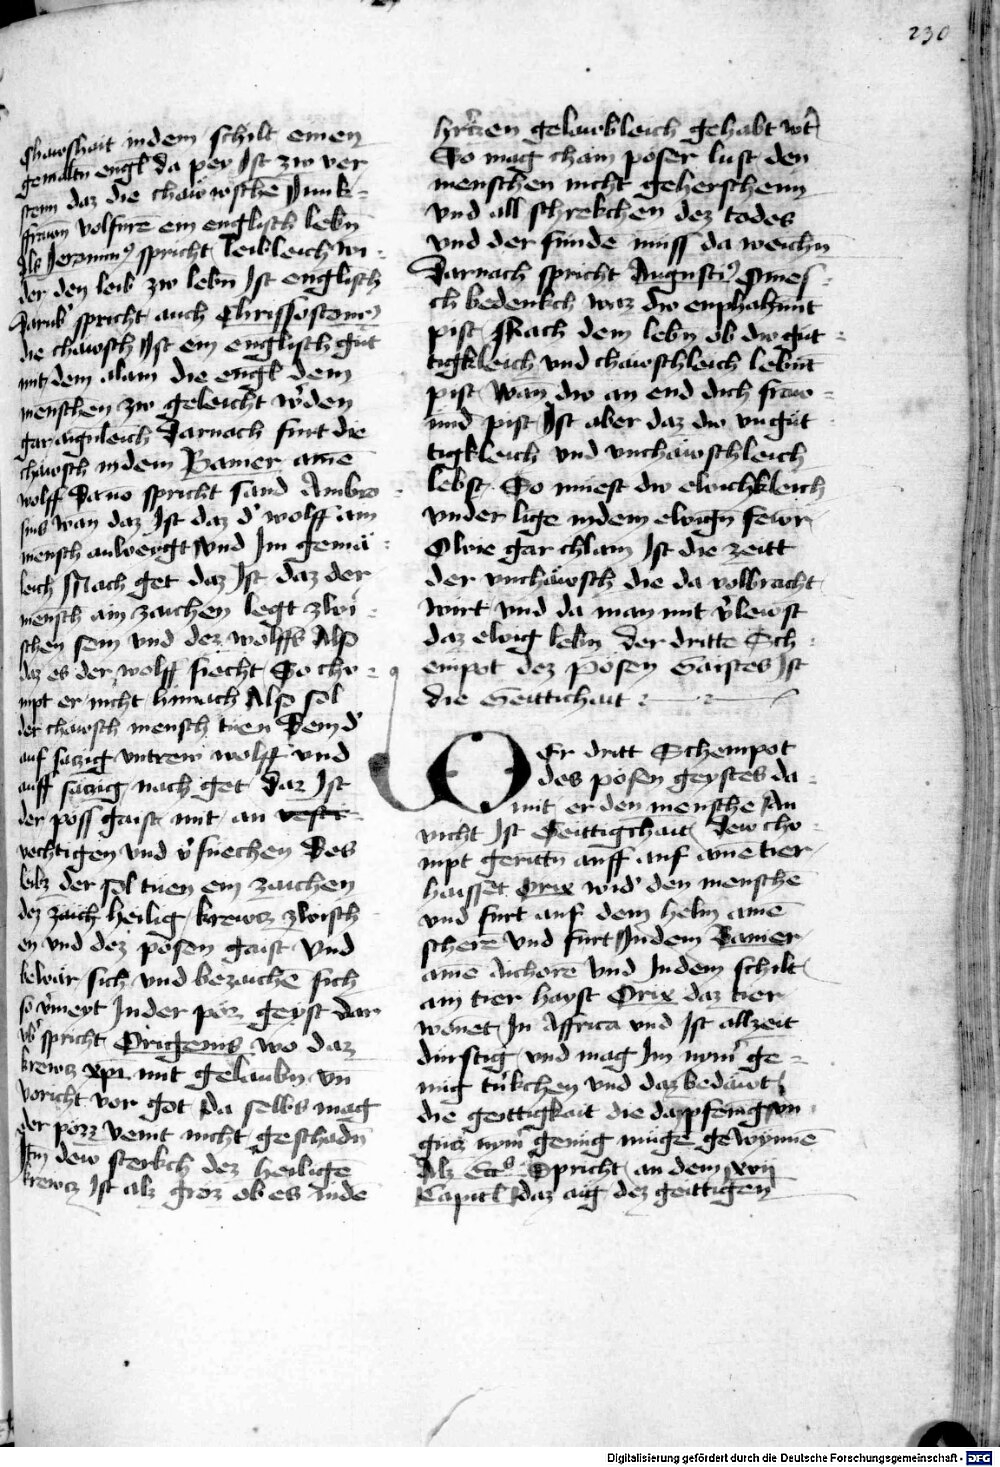 230
chawshait in dem schilt einen
gemaltn engl da pey Ist zw ver
stenn daz die chawwschē Junk-
frawn volfurē ein englisch lebn
Als Jeronim9 spricht leibleich wi-
der den leib zw lebn Ist englisch
Darub spricht auch Chrissostom9
die chawsch Ist ein englisch gut
mit dem alain die engl dem
menschen zw geleicht werden
gar aignleich Darnach furt die
chawsch in dem Baner ainē
wolff Davo spricht sand Ambro-
sius wan daz Ist daz d' wolff ain
mensch anweygt vnd Im gemä-
leich Nach get daz Ist daz der
mensch ain zaichen legt zwi-
schen sein vnd dez wolffs Also
daz es der wolff siecht So cho-
mpt er nicht hinnach Also sol
der chawsch mensch tuen Dem d'
auf saczig vntrew wolff vnd
auff saczig nach get Daz Ist
der poss gaist mit an
vechtigen vnd v'suechen Des
leibz der sol tuen ein zaichen
dez zaich heilig krewcz zwisch-
en vnd dez posen gaist Vnd
bewar sich vnd bezaichē sich
so v'meyt In der poz geyst dar
vb' spricht Origenis wo daz
krewcz xpi mit gelaubn vn
voricht vor got Da selbs mag
der pozz veint nicht geschadn
Im dew sterkch dez heilige
krewcz Ist alz groz ob es Inde
hrczen gelawbleich gehabt wt
So mag chain poser lust den
menschen nicht geherschenn
vnd all schrekchen dez todes
vnd der sunde muss da weichn
Darnach spricht Augusti9 Ones-
ch bedenkch waz dw enphahunt
pist Nach dem lebn ob dw gut-
tigkleich vnd chawschleich lebūt
pist Wan dw an end dich frew-
und pist Ist aber daz dw vngut-
tigkleich vnd vnchäwschleich
lebst So muest dw ewichkleich
vnder lige in dem ewign fewr
O wie gar chlain Ist die zeitt
der vnchäwsch die da volbracht
wirt vnd da man mit v'lewst
daz ewig lebn Der dritte Sch-
empot dez Posen Gaistes Ist
die Geittichait
Er dritt Schempot
des posen geystes da-
mit er den menschē An
vicht Ist Geittigchait Dew cho-
mpt geritn auff auf ainē tier
haisset Orix wid' den menschē
vnd furt auf dem helm ainē
scherē vnd furt In dem Baner
ainē Aichorē Vnd In dem schilt
ain tier hayst Orix daz tier
wonet In Affrica vnd Ist allzeit
durstig vnd mag Im nym' ge-
nug trikchen vnd daz bedäwt
die geittigkait die da pfenig vn
gucz nym' genug muge gewynnē
Alz Eccs Spricht an dem xvii
Capitl daz aug dez geittigen
Digitalisierung gefördert durch die Deutsche Forschungsgemeinschaft - DFG